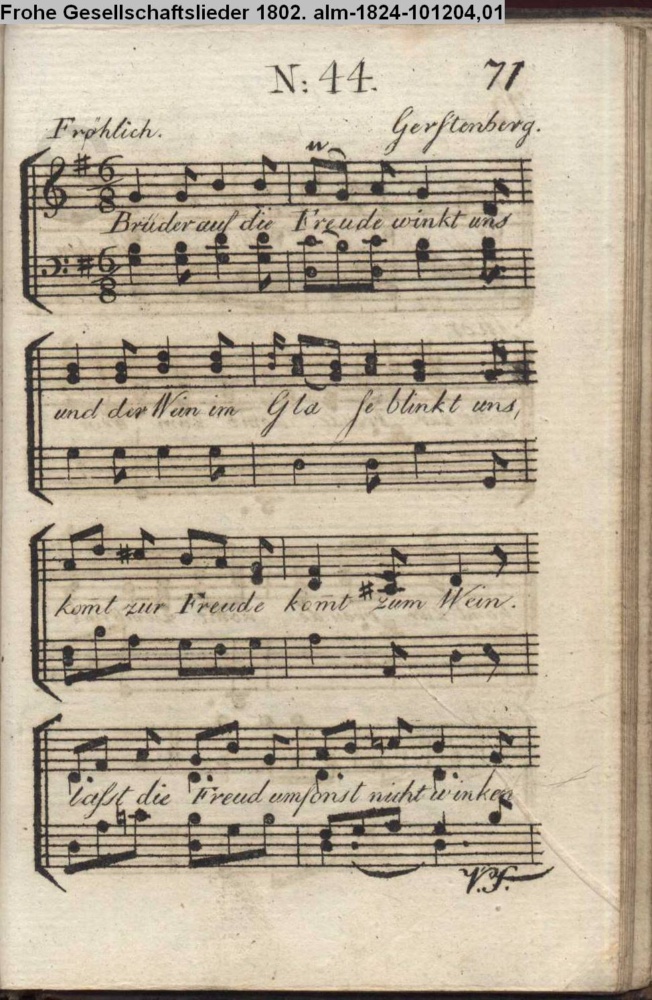 Frohe Gesellschaftslieder 1802. alm-1824-101204,01
N: 44.
71
Fröhlich.
Gerstenberg.
Brüder auf die Freude winkt uns
und der Wein im Gla se blinkt uns,
kom̄t zur Freude kom̄t zum Wein.
lasst die Freud umsonst nicht winken
V.S.